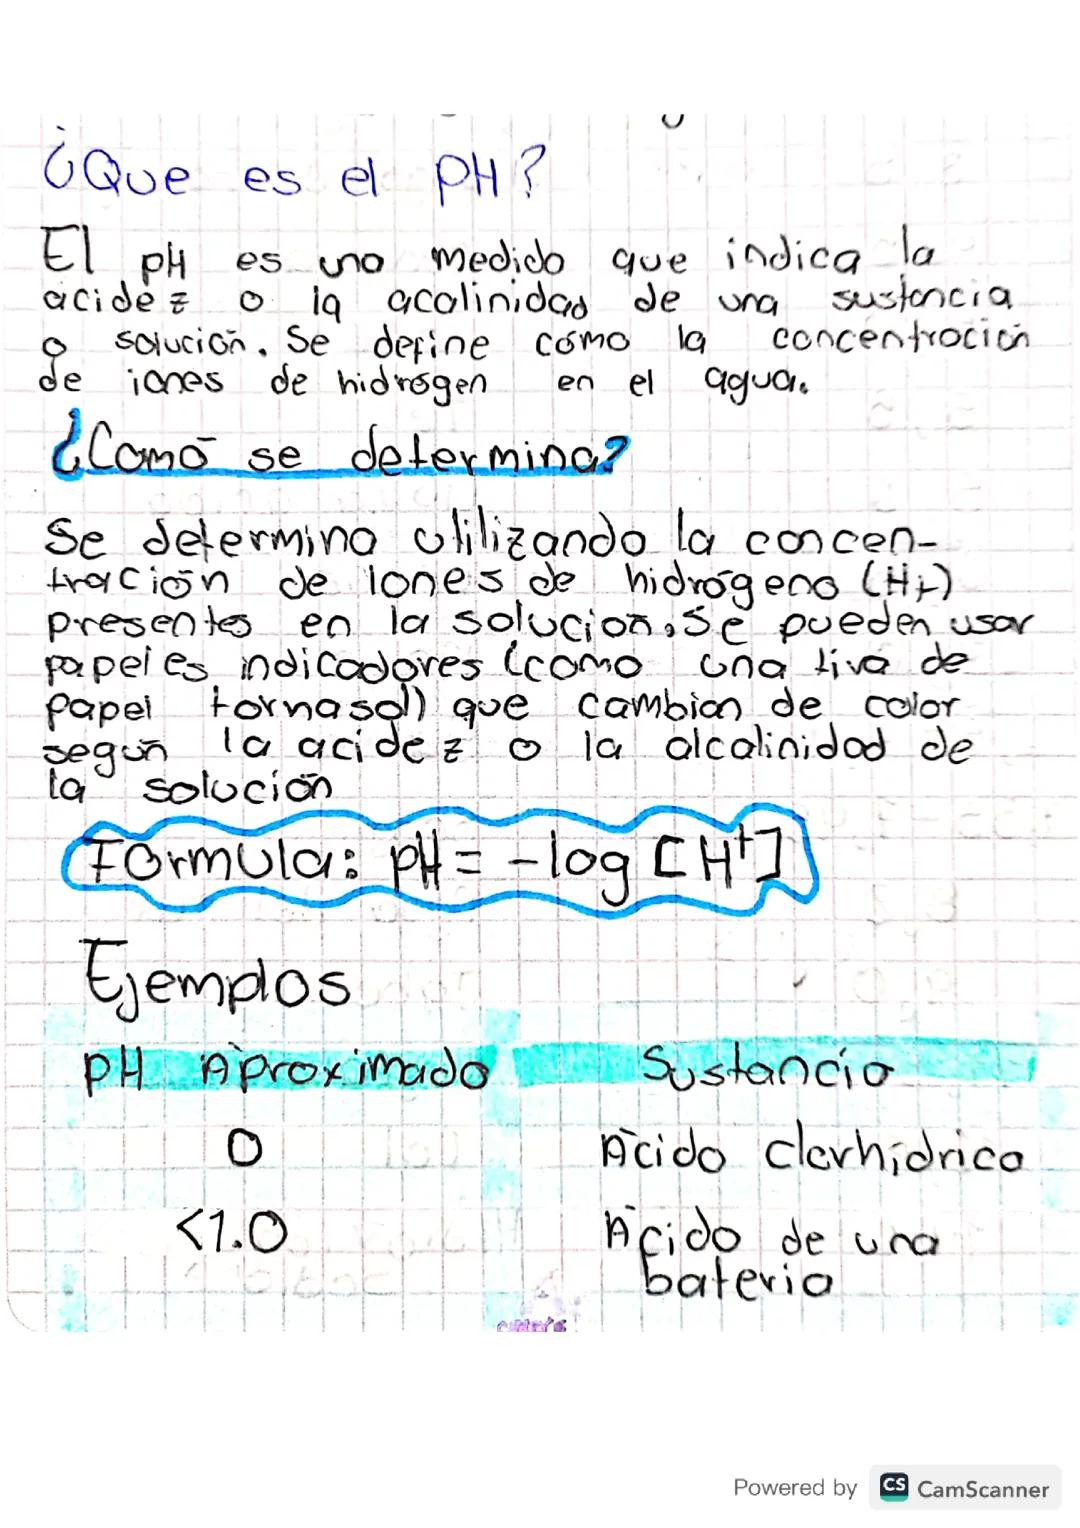 ¿Que es el pH?
El pH es una medida que indica la
acidez o la acalinidad de una sustancia
o solución. Se define cómo la concentración
de iones de hidrógen en el agua.
¿Comó se determina?
Se determina utilizando la concen-
tración de iones de hidrógeno (H+)
presentes en la solución. Se pueden usar
papeles indicadores (como una tira de
papel tornasol) que cambian de color
según la acidez o la alcalinidad de
la solución
Formula: pH = -log [H+]
Ejemplos
pH Aproximado Sustancia
0 Ácido clorhídrico
<1.0 Ácido de una
batería
Powered by CS CamScanner